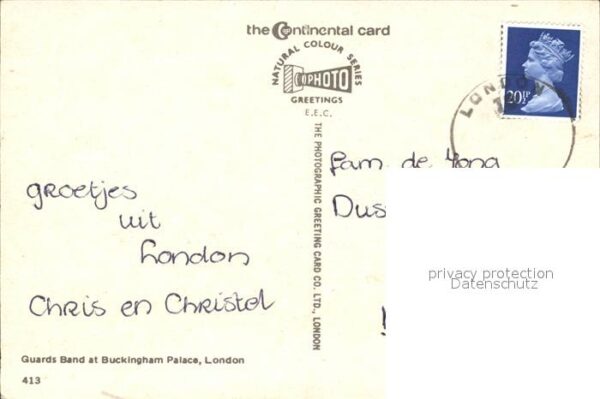 the Continental card
NATURAL COLOUR SERIES
PHOTO
GREETINGS
E.E.C.
THE PHOTOGRAPHIC GREETING CARD CO. LTD., LONDON
20½P
LONDON
groetjes
uit
London
Chris en Christel
Fam. de Jong
Dus
privacy protection
Datenschutz
Guards Band at Buckingham Palace, London
413